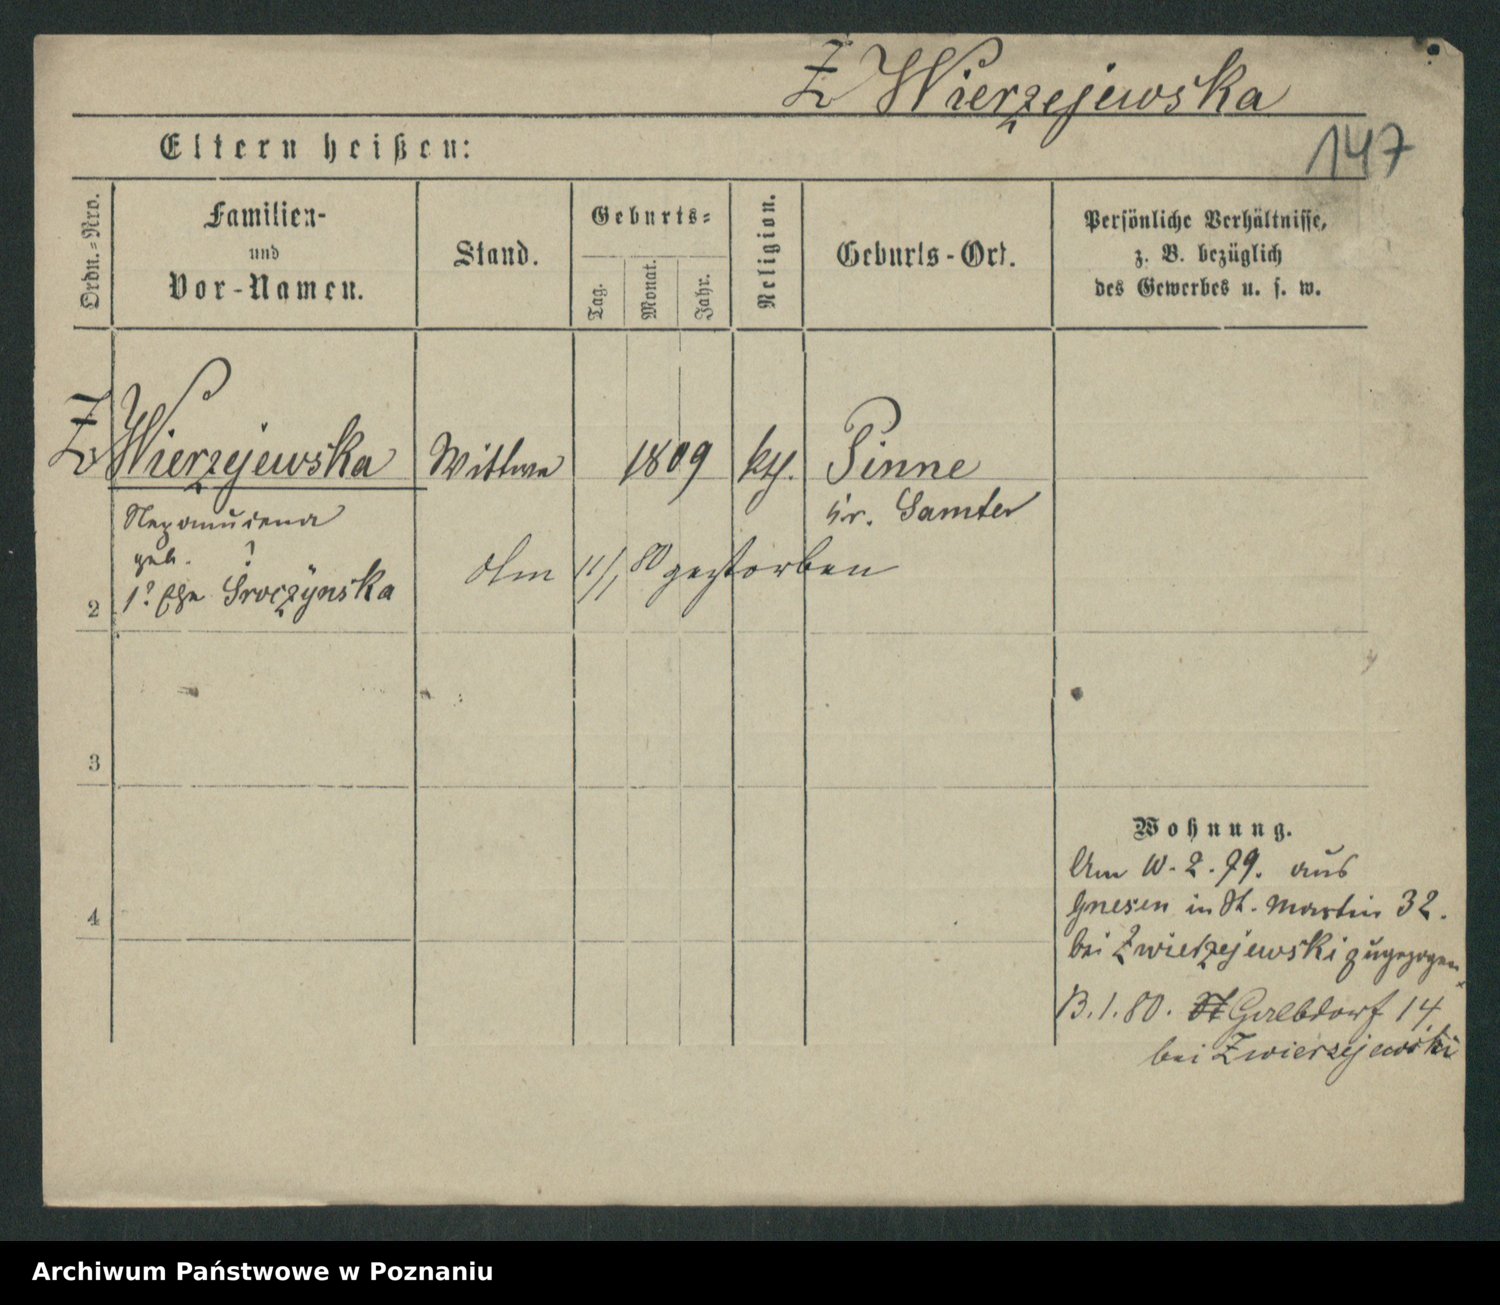 Z Wierzejewska
147
Eltern heißen:
Ordn.=Nro.
Familien-
und
Vor-Namen.
Stand.
Geburts=
Tag.
Monat.
Jahr.
Religion.
Geburts-Ort.
Persönliche Verhältnisse,
z. B. bezüglich
des Gewerbes u. s. w.
Z Wierzejewska Wittwe 1809 kth. Pinne
Nepomucena Kr. Samter
geb. ?
1? Ehe Sroczynska
Am 11/1 80 gestorben
2
3
4
Wohnung.
Am 10.2.79. aus
Gnesen in St. Martin 32.
bei Zwierzejewski zugezogen
13.1.80. Halbdorf 14
bei Zwierzejewski
Archiwum Państwowe w Poznaniu